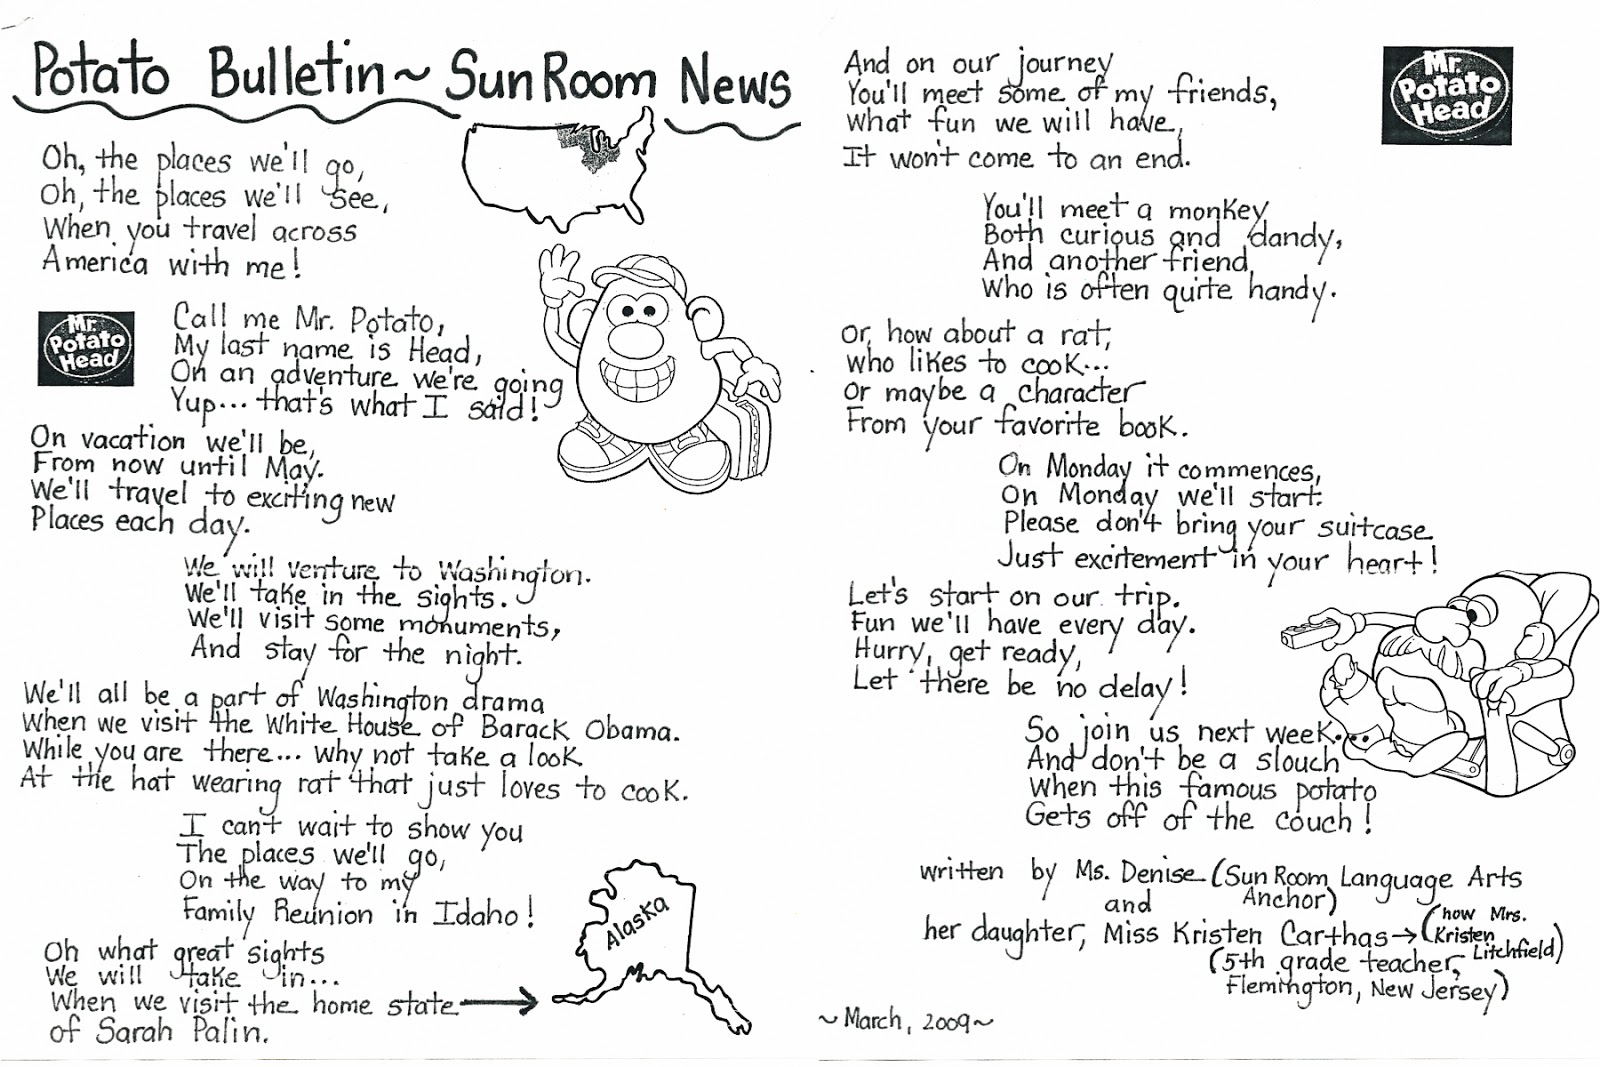 Potato Bulletin ~ Sun Room News
Oh, the places we'll go,
Oh, the places we'll see,
When you travel across
America with me!
Mr.
Potato
Head
Call me Mr. Potato,
My last name is Head,
On an adventure we're going
Yup... that's what I said!
On vacation we'll be,
From now until May.
We'll travel to exciting new
Places each day.
We will venture to Washington.
We'll take in the sights.
We'll visit some monuments,
And stay for the night.
We'll all be a part of Washington drama
When we visit the White House of Barack Obama.
While you are there... why not take a look
At the hat wearing rat that just loves to cook.
I can't wait to show you
The places we'll go,
On the way to my
Family Reunion in Idaho!
Oh what great sights
We will take in...
When we visit the home state →
of Sarah Palin.
Alaska
Mr.
Potato
Head
And on our journey
You'll meet some of my friends,
What fun we will have,
It won't come to an end.
You'll meet a monkey
Both curious and dandy,
And another friend
Who is often quite handy.
Or, how about a rat,
Who likes to cook...
Or maybe a character
From your favorite book.
On Monday it commences,
On Monday we'll start.
Please don't bring your suitcase
Just excitement in your heart!
Let's start on our trip.
Fun we'll have every day.
Hurry, get ready,
Let there be no delay!
So join us next week...
And don't be a slouch
When this famous potato
Gets off of the couch!
written by Ms. Denise (Sun Room Language Arts
Anchor)
and
her daughter, Miss Kristen Carthas → (now Mrs.
Kristen
Litchfield)
(5th grade teacher,
Flemington, New Jersey)
~ March, 2009 ~